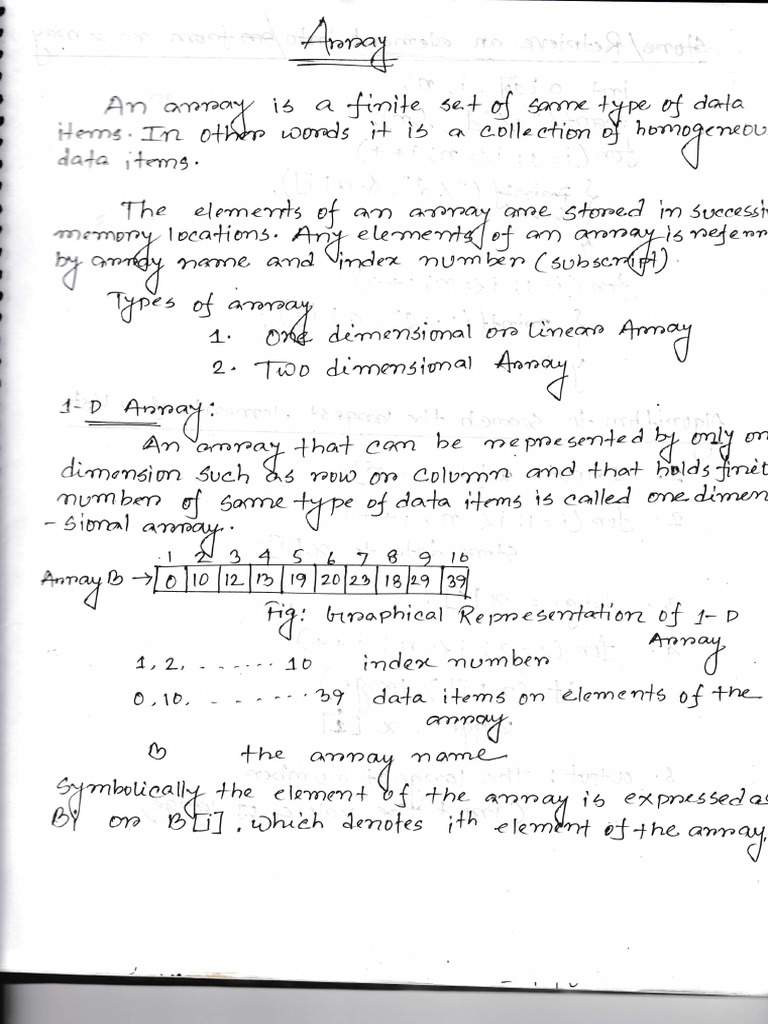 Array
An array is a finite set of same type of data
items. In other words it is a collection of homogeneou
data items.
The elements of an array are stored in successi
memory locations. Any elements of an array is referr
by array name and index number (subscript).
Types of array
1. One dimensional or linear Array
2. Two dimensional Array
1-D Array:
An array that can be represented by only on
dimension such as row or column and that holds finit
number of same type of data items is called one dimen
-sional array.
1 2 3 4 5 6 7 8 9 10
Array B → 0 10 12 13 19 20 23 18 29 39
Fig: Graphical Representation of 1-D
Array
1, 2, ....... 10 index number
0, 10, ........ 39 data items or elements of the
array.
B the array name
Symbolically the element of the array is expressed as
Bi or B[i], which denotes ith element of the array.